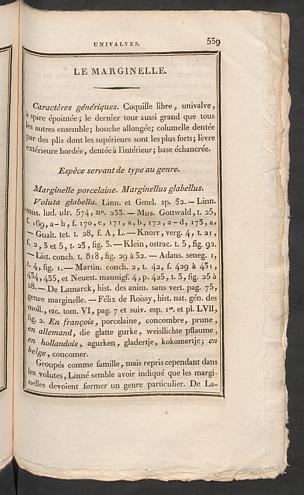 UNIVALVES. 559
LE MARGINELLE.
Caractères génériques. Coquille libre, univalve,
à spire épointée; le dernier tour aussi grand que tous
les autres ensemble; bouche allongée; columelle dentée
par des plis dont les supérieurs sont les plus forts; lèvre
extérieure bordée, dentée à l'intérieur; base échancrée.
Espèce servant de type au genre.
Marginelle porcelaine. Marginellus glabellus.
Voluta glabella. Linn. et Gmel. sp. 32. — Linn.
mus. lud. ulr. 574, no. 233. — Mus. Gottwald, t. 25,
f. 169, a-h, f. 170, c, 171, a, b, 172, a-d, 173, a,
— Gualt. tet. t. 28, f. A, L. — Knorr, verg. 4, t. 21,
f. 2, 3 et 5, t. 23, fig. 3. — Klein, ostrac. t. 5, fig. 92.
— List. conch. t. 818, fig. 29 à 32. — Adans. seneg. 1,
t. 4, fig. 1. — Martin. conch. 2, t. 42, f. 429 à 431,
434, 435, et Neuest. mannigf. 4, p. 425, t. 3, fig. 25 à
28. — De Lamarck, hist. des anim. sans vert. pag. 75,
genre marginelle. — Félix de Roissy, hist. nat. gén. des
moll., etc. tom. VI, pag. 7 et suiv. esp. 1re. et pl. LVII,
fig. 2. En français, porcelaine, concombre, prune,
en allemand, die glatte gurke, weislichte pflaume,
en hollandois, agurken, gladertje, kokomertje; en
belge, concomer.
Groupés comme famille, mais repris cependant dans
les volutes, Linné semble avoir indiqué que les margi-
nelles devoient former un genre particulier. De La-